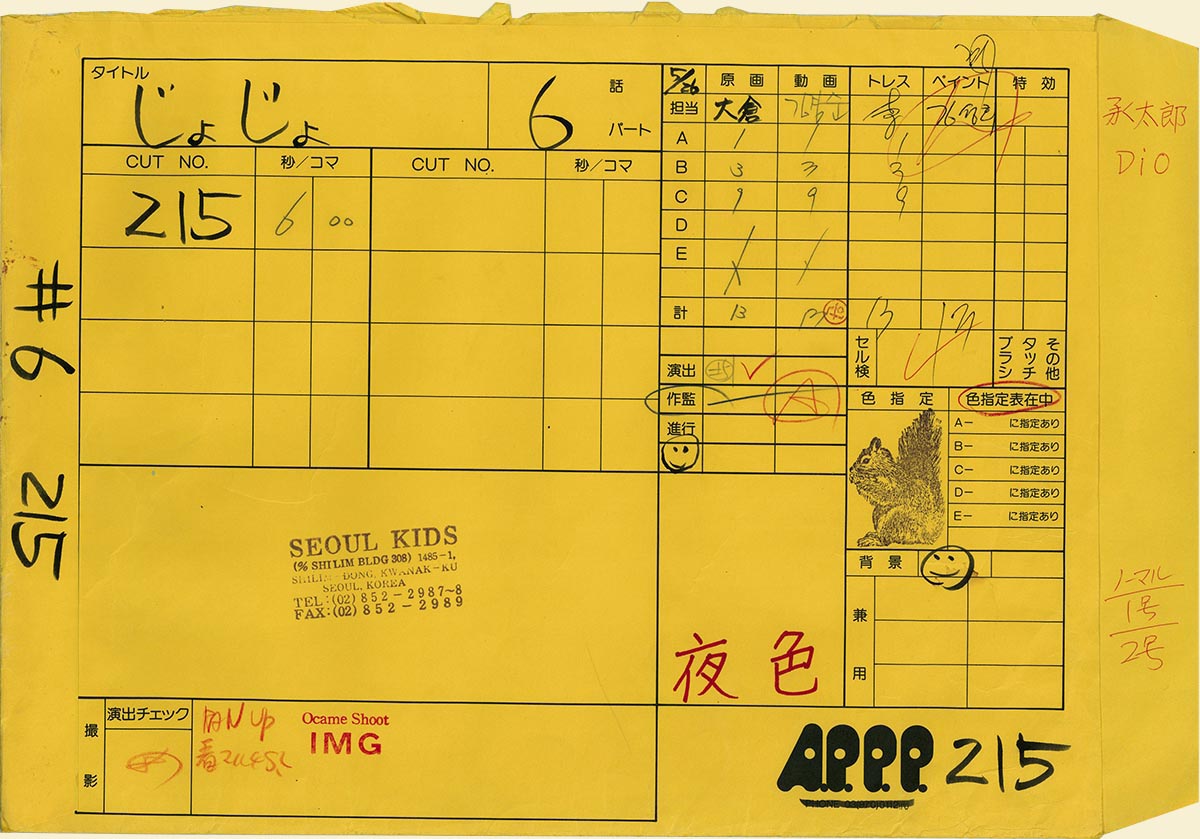 タイトル
じょじょ
6
話
パート
CUT NO.
秒/コマ
CUT NO.
秒/コマ
215
6
00
5/26
原画
動画
トレス
ペイント
特効
担当
大倉
李
A
1
1
1
B
3
3
3
C
9
9
9
D
E
計
13
13
13
演出
作監
A
進行
セル検
その他
タッチ
ブラシ
色指定
色指定表在中
A- に指定あり
B- に指定あり
C- に指定あり
D- に指定あり
E- に指定あり
背景
兼用
SEOUL KIDS
(% SHILIM BLDG 308) 1485-1,
SHILIM-DONG, KWANAK-KU
SEOUL, KOREA
TEL:(02) 852-2987~8
FAX:(02) 852-2989
夜色
撮影
演出チェック
PAN UP
Ocame Shoot
IMG
A.P.P.P.
215
#6 215
承太郎
DiO
ノーマル
1号
2号